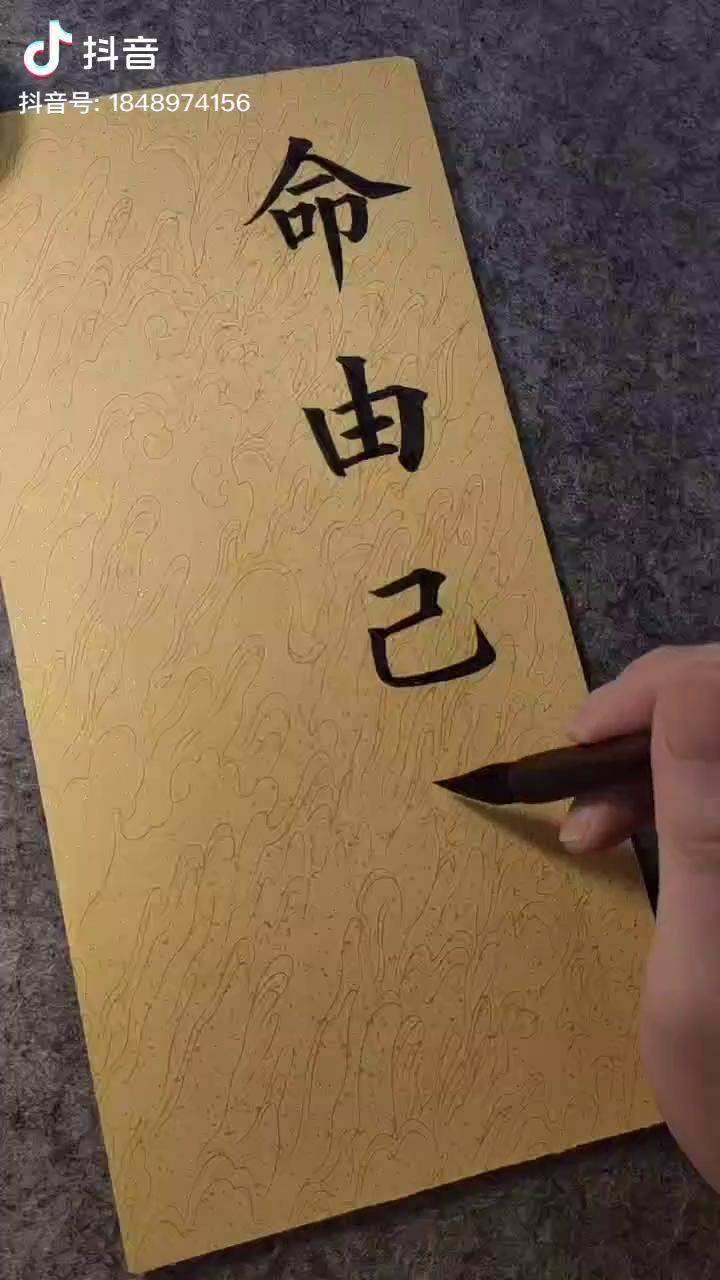 抖音
抖音号: 1848974156
命由己